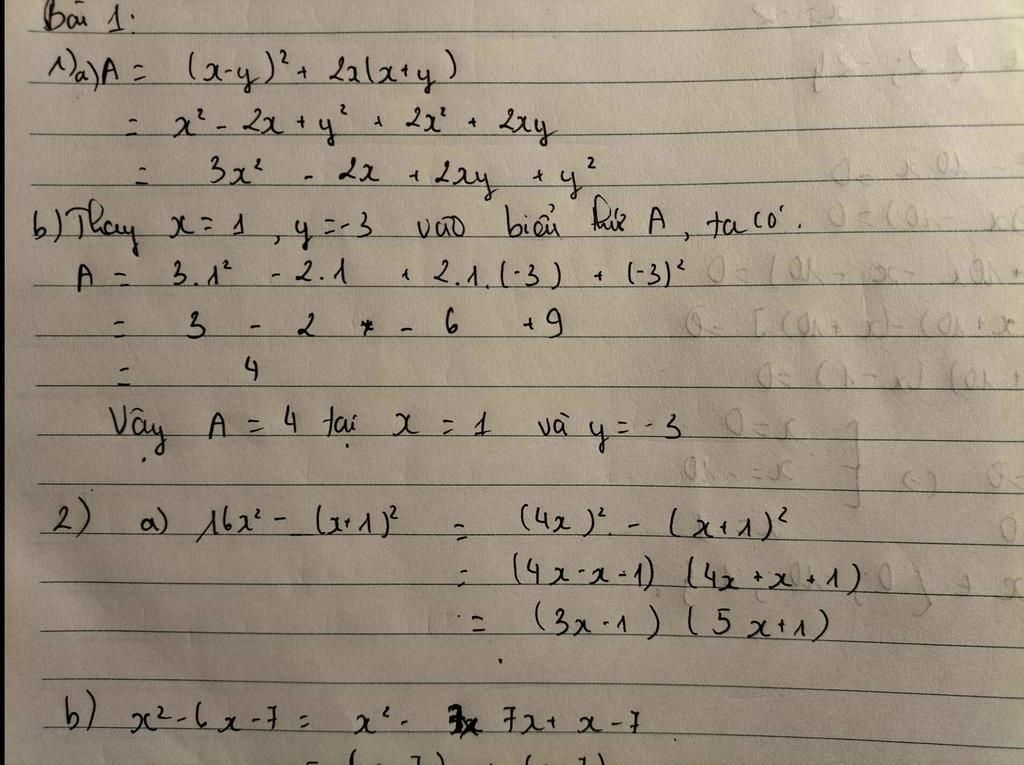 Bài 1:
1) a) A = (x-y)² + 2x(x+y)
= x² - 2x + y² + 2x² + 2xy
= 3x² - 2x + 2xy + y²
b) Thay x = 1, y = -3 vào biểu thức A, ta có.
A = 3.1² - 2.1 + 2.1.(-3) + (-3)²
= 3 - 2 - 6 + 9
= 4
Vậy A = 4 tại x = 1 và y = -3
2) a) 16x² - (x+1)² = (4x)² - (x+1)²
= (4x-x-1) (4x+x+1)
= (3x-1) (5x+1)
b) x²-6x-7 = x² - 7x + x - 7